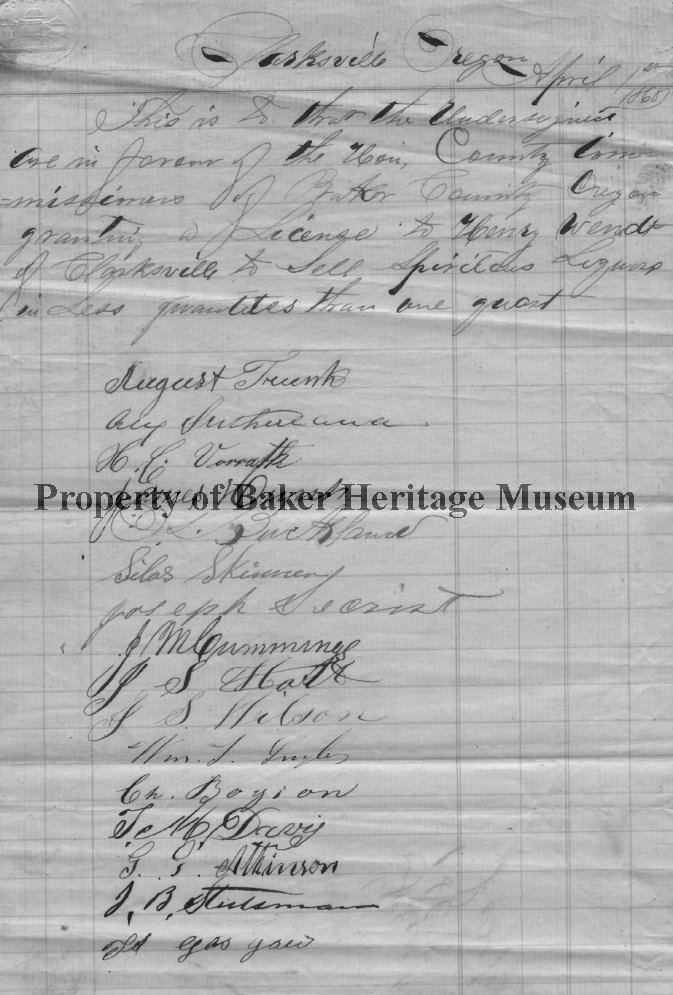 Clarksville Oregon April 1st
1868
This is to that the Undersigned
are in favour of the Hon, County Com
=missioners of Baker County Oregon
granting a License to Henry Wendt
of Clarksville to Sell Spiritous Liquors
in Less quantites than one quart
August Trunk
Alex Sutherland
H. C. Vorrath
Property of Baker Heritage Museum
C. L. Buckland
Silas Skinner
Joseph Secrist
J M Cummings
J S
J S. Wilson
Wm. L.
Ch. Bogion
T. M. Davis
G. G. Atkinson
J. B. Stutsman